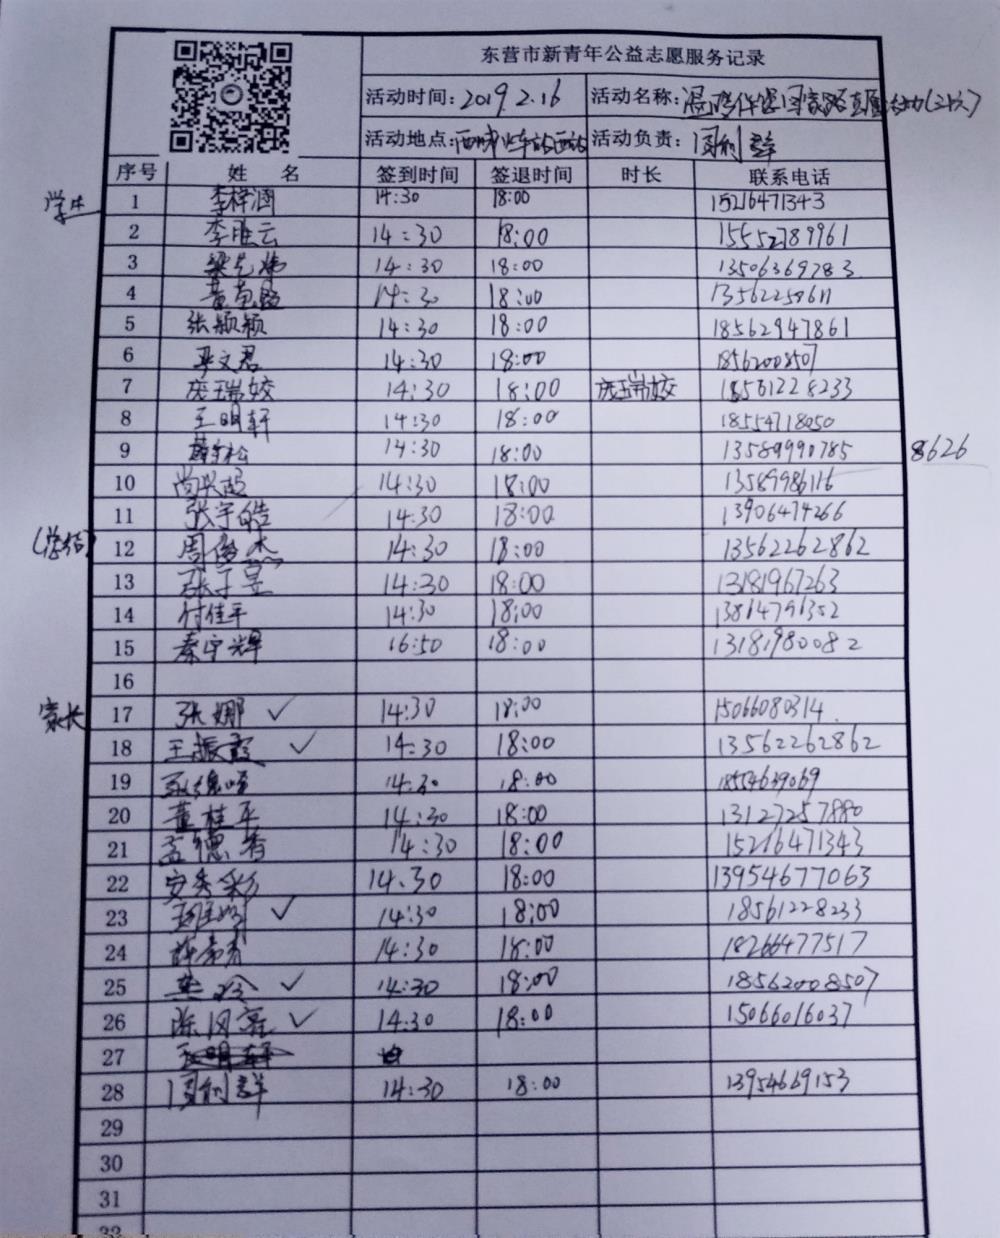 东营市新青年公益志愿服务记录
活动时间：2019.2.16 活动名称：
活动地点： 活动负责：周利群
序号 姓名 签到时间 签退时间 时长 联系电话
学生 1 李梓涵 14:30 18:00 15216471343
2 李胜云 14:30 18:00 15552789961
3 14:30 18:00 13506369783
4 14:30 18:00 13562258611
5 张颖颖 14:30 18:00 18562947861
6 文君 14:30 18:00 18562008507
7 庞瑞姣 14:30 18:00 庞瑞姣 18561228233
8 王明轩 14:30 18:00 18554718050
9 薛松 14:30 18:00 13589990785 8626
10 尚兴 14:30 18:00 13589986116
11 张宇皓 14:30 18:00 13906474266
12 周俊杰 14:30 18:00 13562262862
13 张子昱 14:30 18:00 13181967263
14 付佳平 14:30 18:00 13864796352
15 秦宇辉 16:50 18:00 13181980082
16
家长 17 张娜 ✓ 14:30 18:00 15066080314
18 王振霞 ✓ 14:30 18:00 13562262862
19 14:30 18:00 18554639069
20 董桂平 14:30 18:00 13127257880
21 孟德香 14:30 18:00 15216471343
22 安秀彩 14:30 18:00 13954677063
23 ✓ 14:30 18:00 18561228233
24 14:30 18:00 18266477517
25 ✓ 14:30 18:00 18562008507
26 陈风亮 ✓ 14:30 18:00 15066016037
27 王明轩
28 周利群 14:30 18:00 13954669153
29
30
31
32